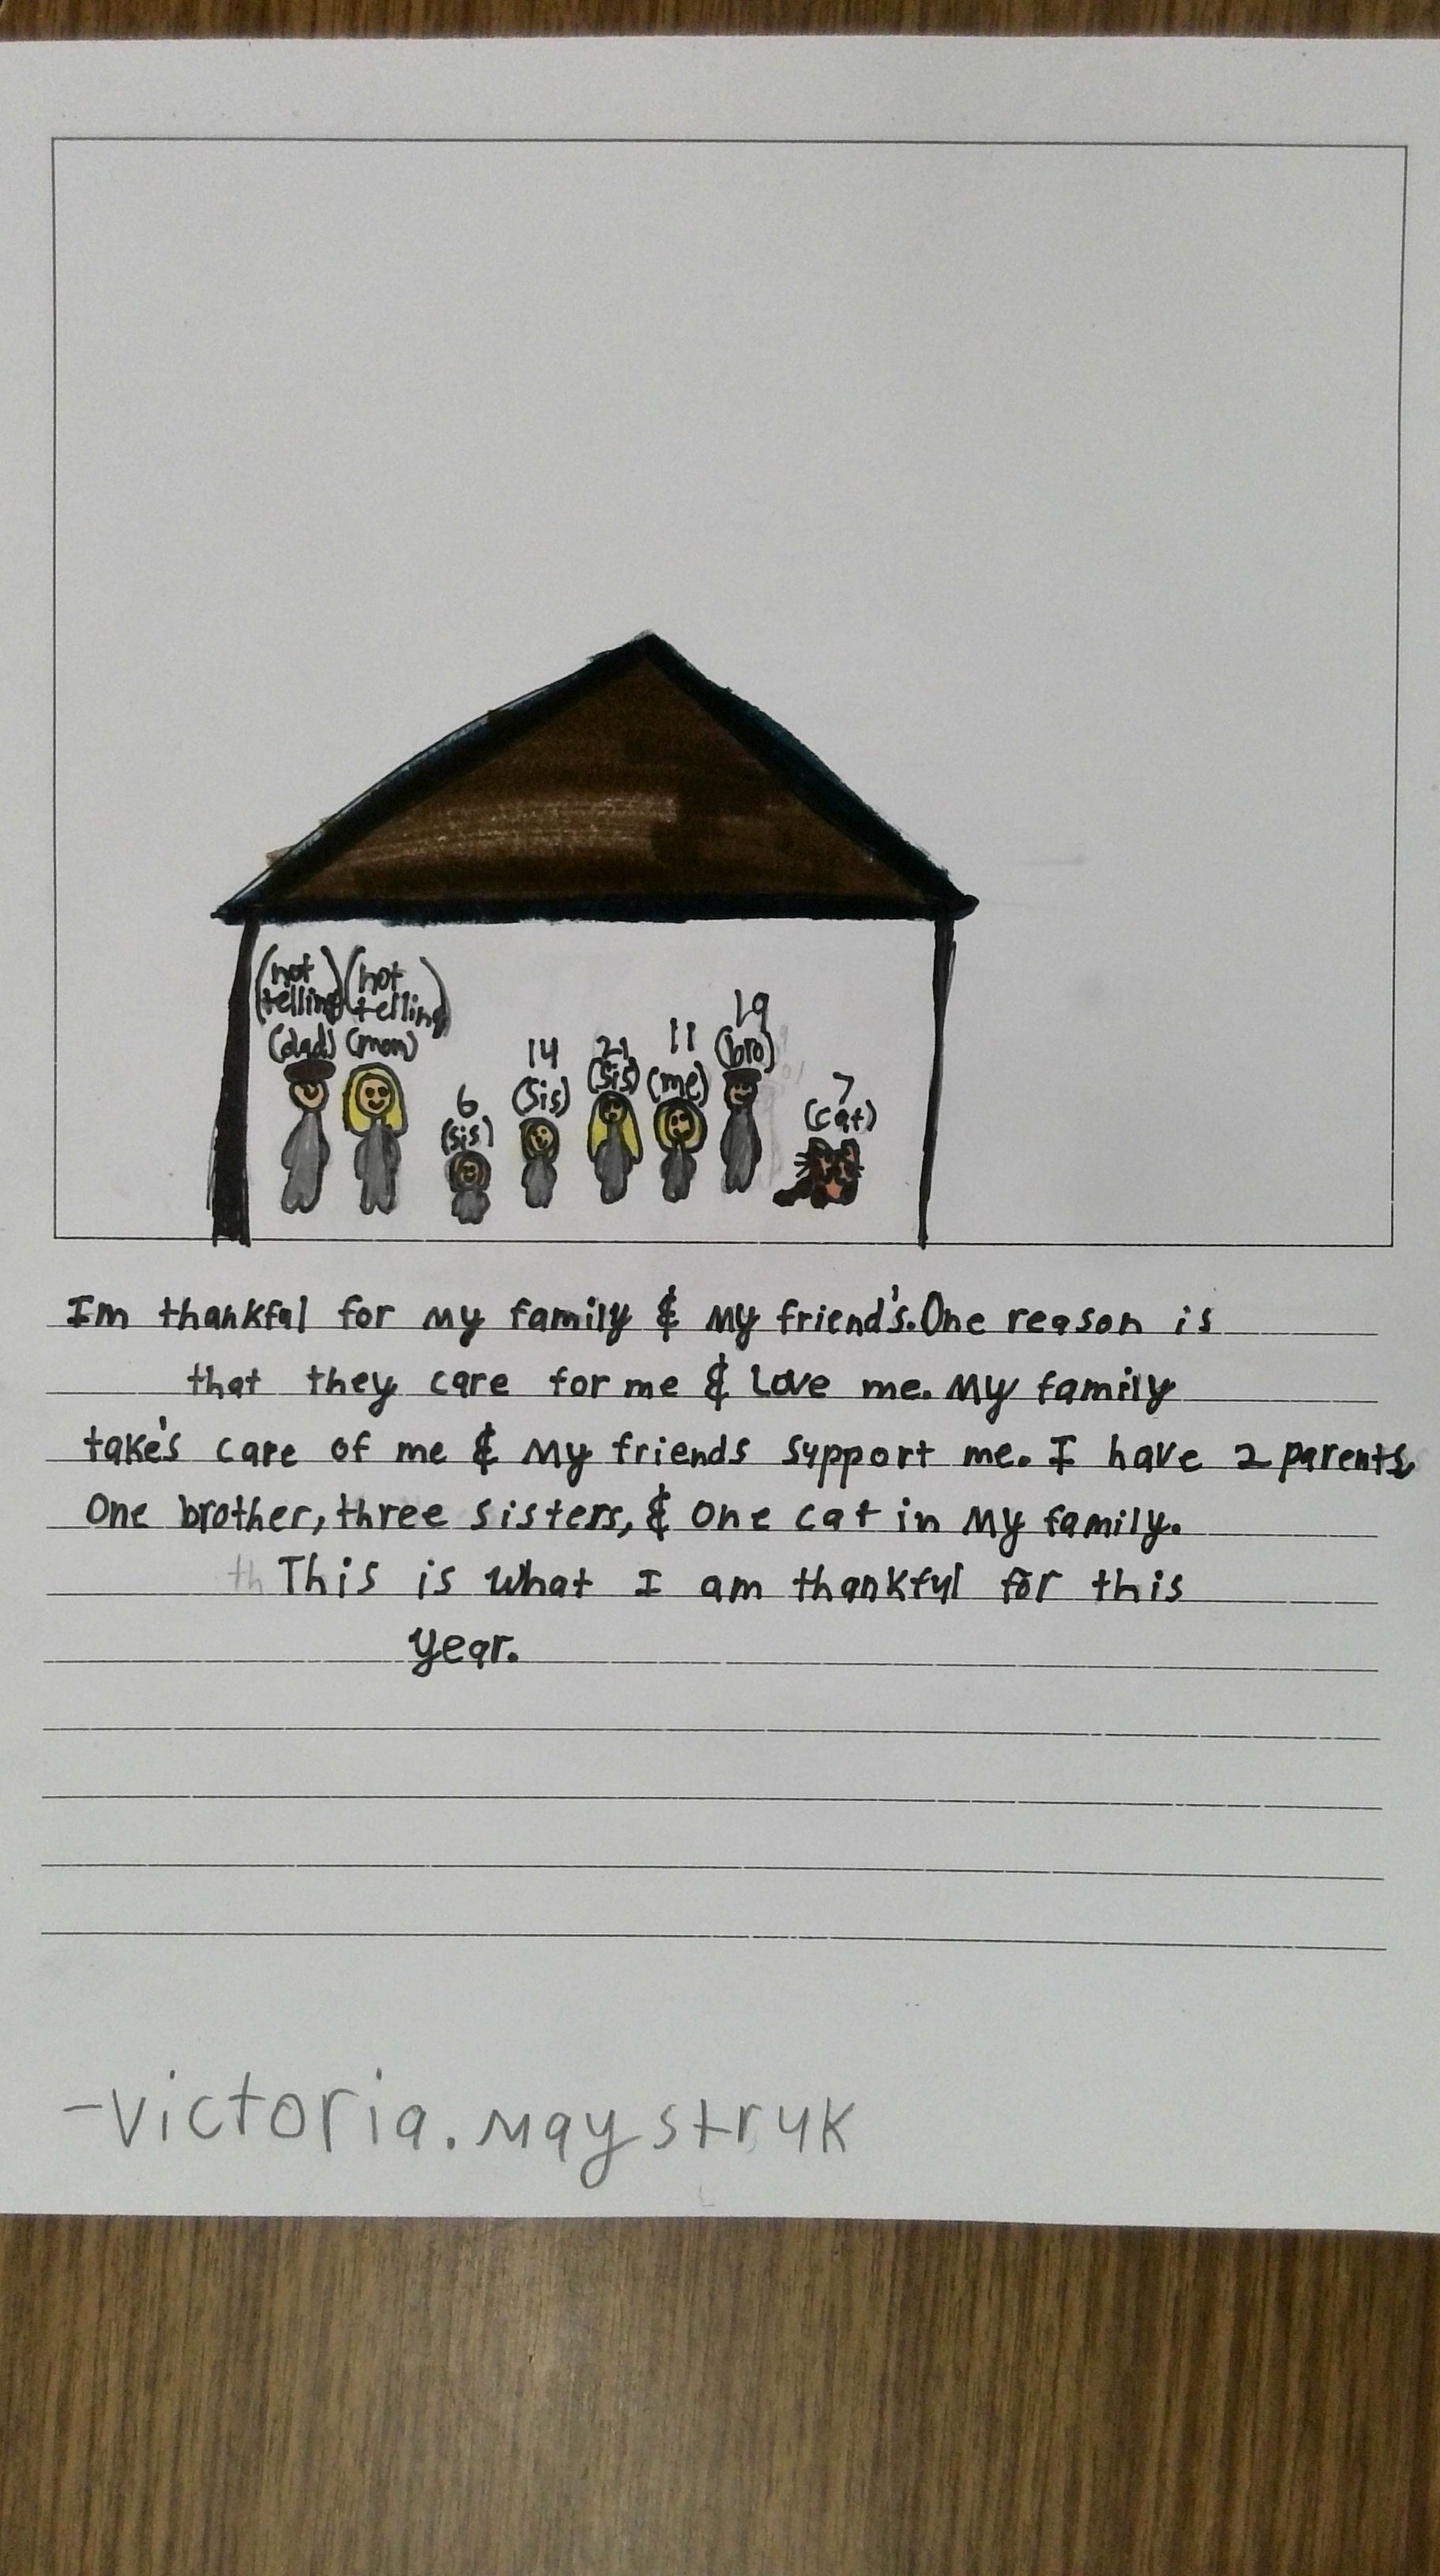 (not telling) (not telling)
(dad) (mom)
6 (sis)
14 (sis)
21 (sis)
11 (me)
19 (bro)
7 (cat)
Im thankful for my family & my friend's. One reason is
that they care for me & love me. My family
take's care of me & my friends support me. I have 2 parents,
One brother, three sisters, & one cat in my family.
th This is what I am thankful for this
year.
-victoria.maystruk